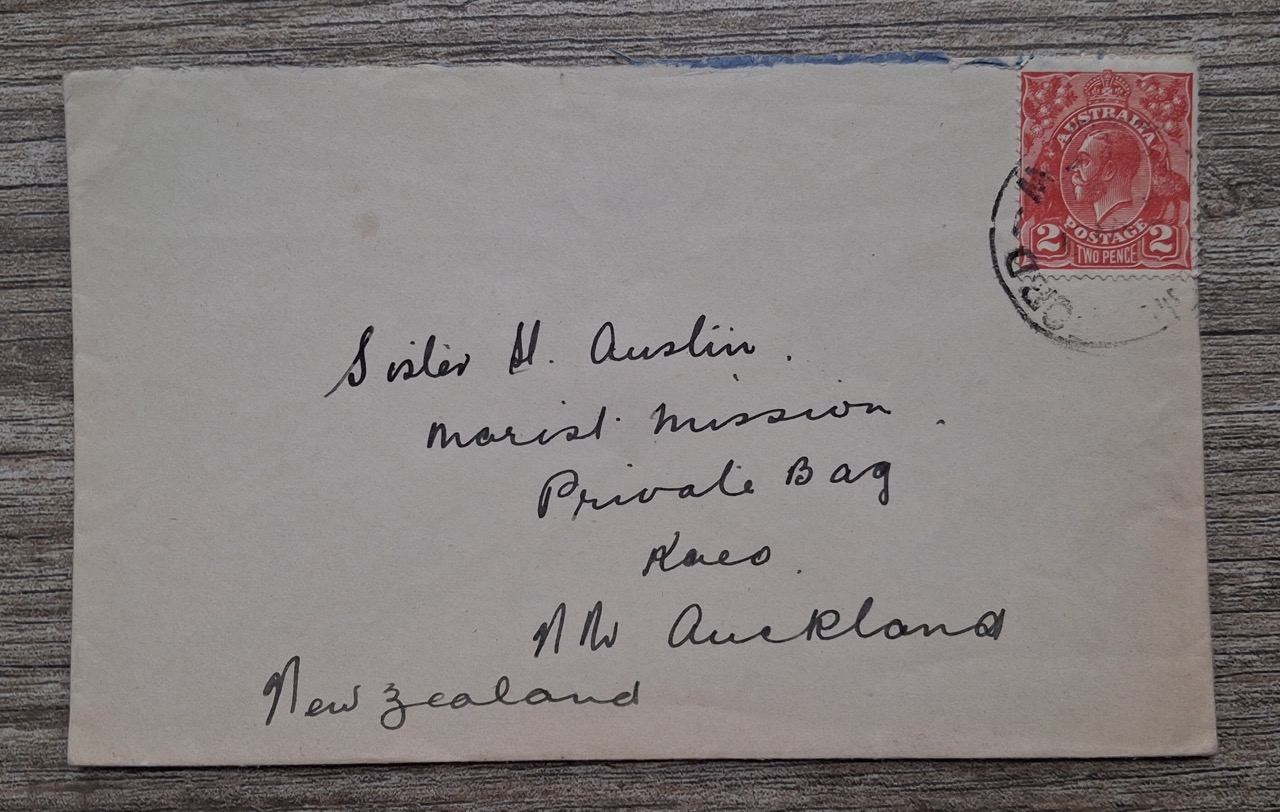 AUSTRALIA
POSTAGE
2 2
TWO PENCE
Sister H. Austin.
Marist Mission.
Private Bag
Kaeo.
New Zealand
Auckland